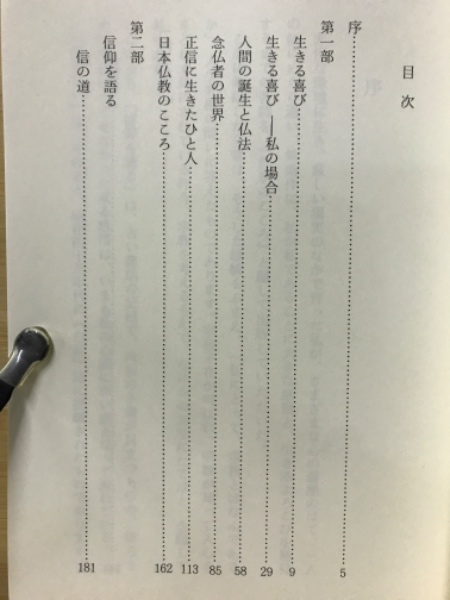 目次
序…………5
第一部
生きる喜び…………9
生きる喜び ――私の場合…………29
人間の誕生と仏法…………58
念仏者の世界…………85
正信に生きたひと人…………113
日本仏教のこころ…………162
第二部
信仰を語る
信の道…………181